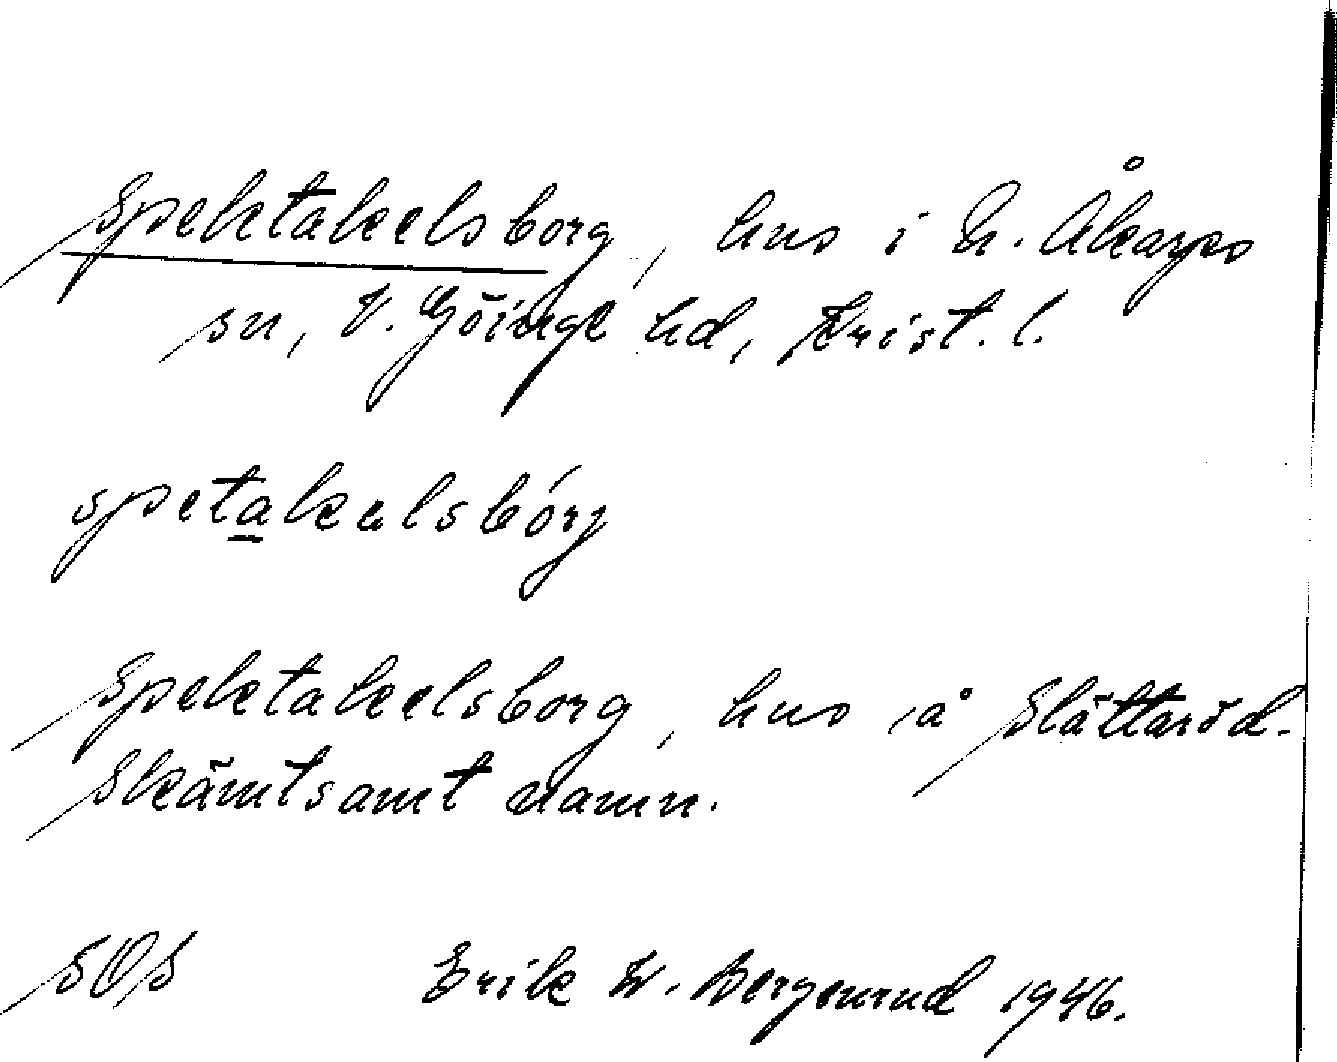 Spektakelsborg, hus i N. Åkarps
sn, V. Göinge hd, Krist. l.
spetakelsbórj
Spektakelsborg, hus å Slättaröd.
Skämtsamt namn.
SOS Erik W. Bergenrud 1946.